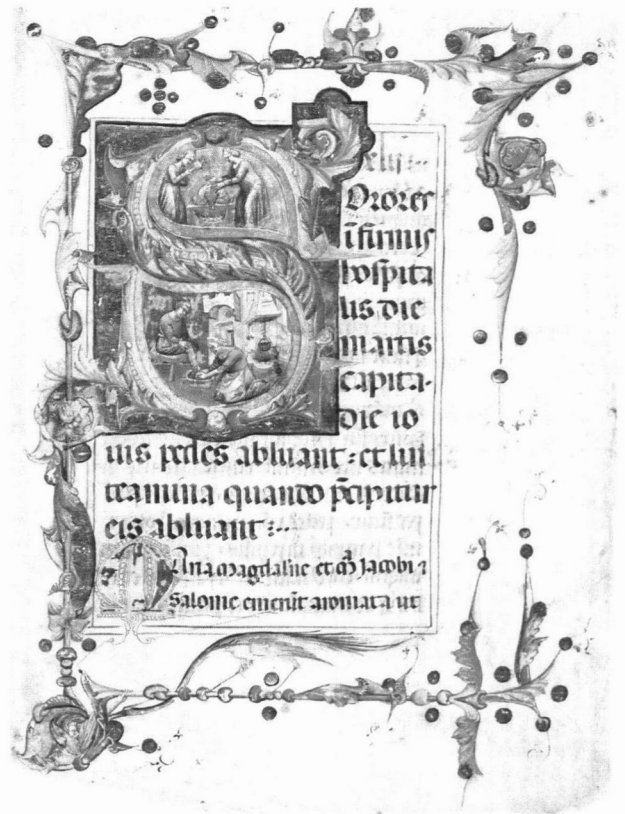 xliii
SORORES
infirmis
hospita
lis die
martis
capita.
die io
uis pedes abluant: et lin
teamina quando p̄cipitur
eis abluant:··
Maria magdalene et m̄ Jacobi ⁊
Salome emerūt aromata ut